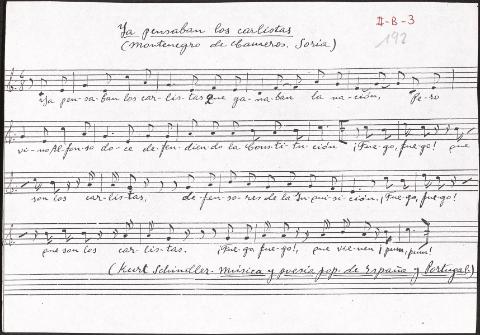 Ya pensaban los carlistas
(Montenegro de Cameros. Soria)
II-B-3
192
Ya pen-sa-ban los car-lis-tas que ga-na-ban la na-ción, Pe-ro
vi-no Alfon-so do-ce de-fen-dien-do la Cons-ti-tu-ción ¡Fue-go, fue-go! que
son los car-lis-tas, de-fen-so-res de la In-qui-si-ción, ¡Fue-go, fue-go!
que son los car-lis-tas. ¡Fue-go, fue-go!, que vie-nen ¡pum, pum!
(Kurt Schindler. Música y poesía pop. de España y Portugal)